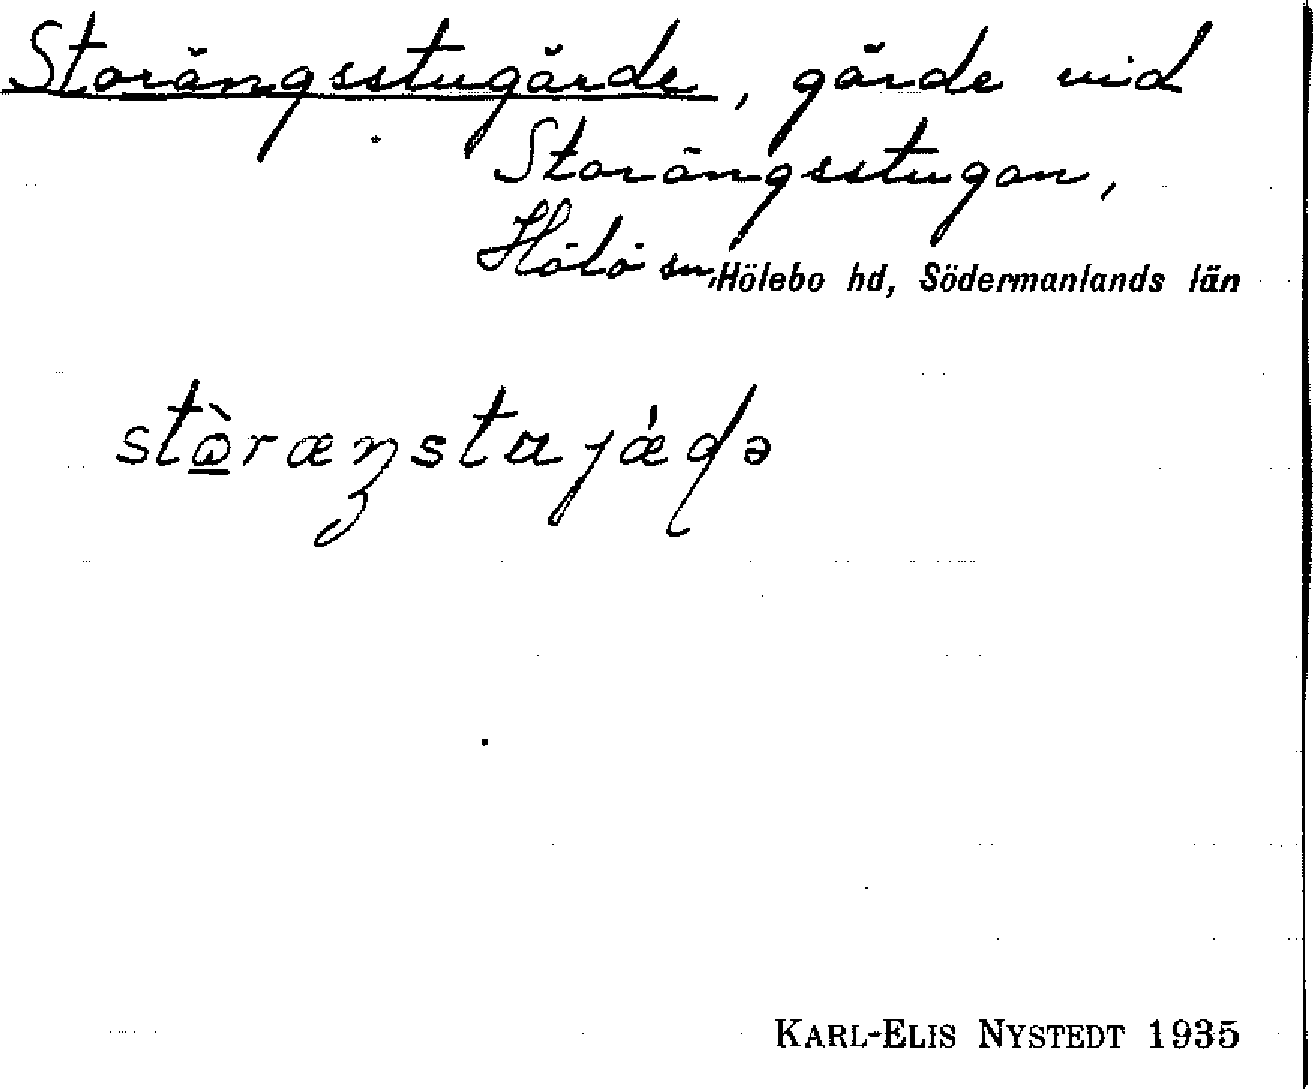 Storängsstugärde, gärde vid
Storängsstugan,
Hölö sn, Hölebo hd, Södermanlands län
KARL-ELIS NYSTEDT 1935